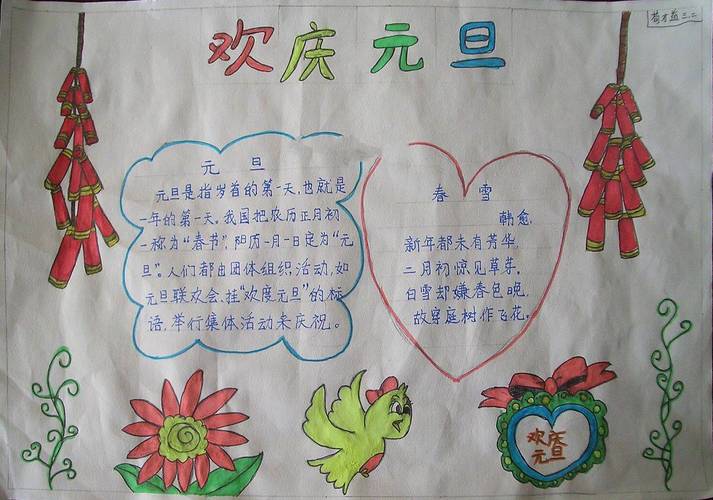 欢庆元旦
三.二
元 旦
元旦是指岁首的第一天,也就是
一年的第一天。我国把农历正月初
一称为“春节”,阳历一月一日定为“元
旦”。人们都由团体组织活动,如
元旦联欢会、挂“欢度元旦”的标
语,举行集体活动来庆祝。
春 雪
韩愈.
新年都未有芳华,
二月初惊见草芽。
白雪却嫌春色晚,
故穿庭树作飞花。
欢庆
元旦